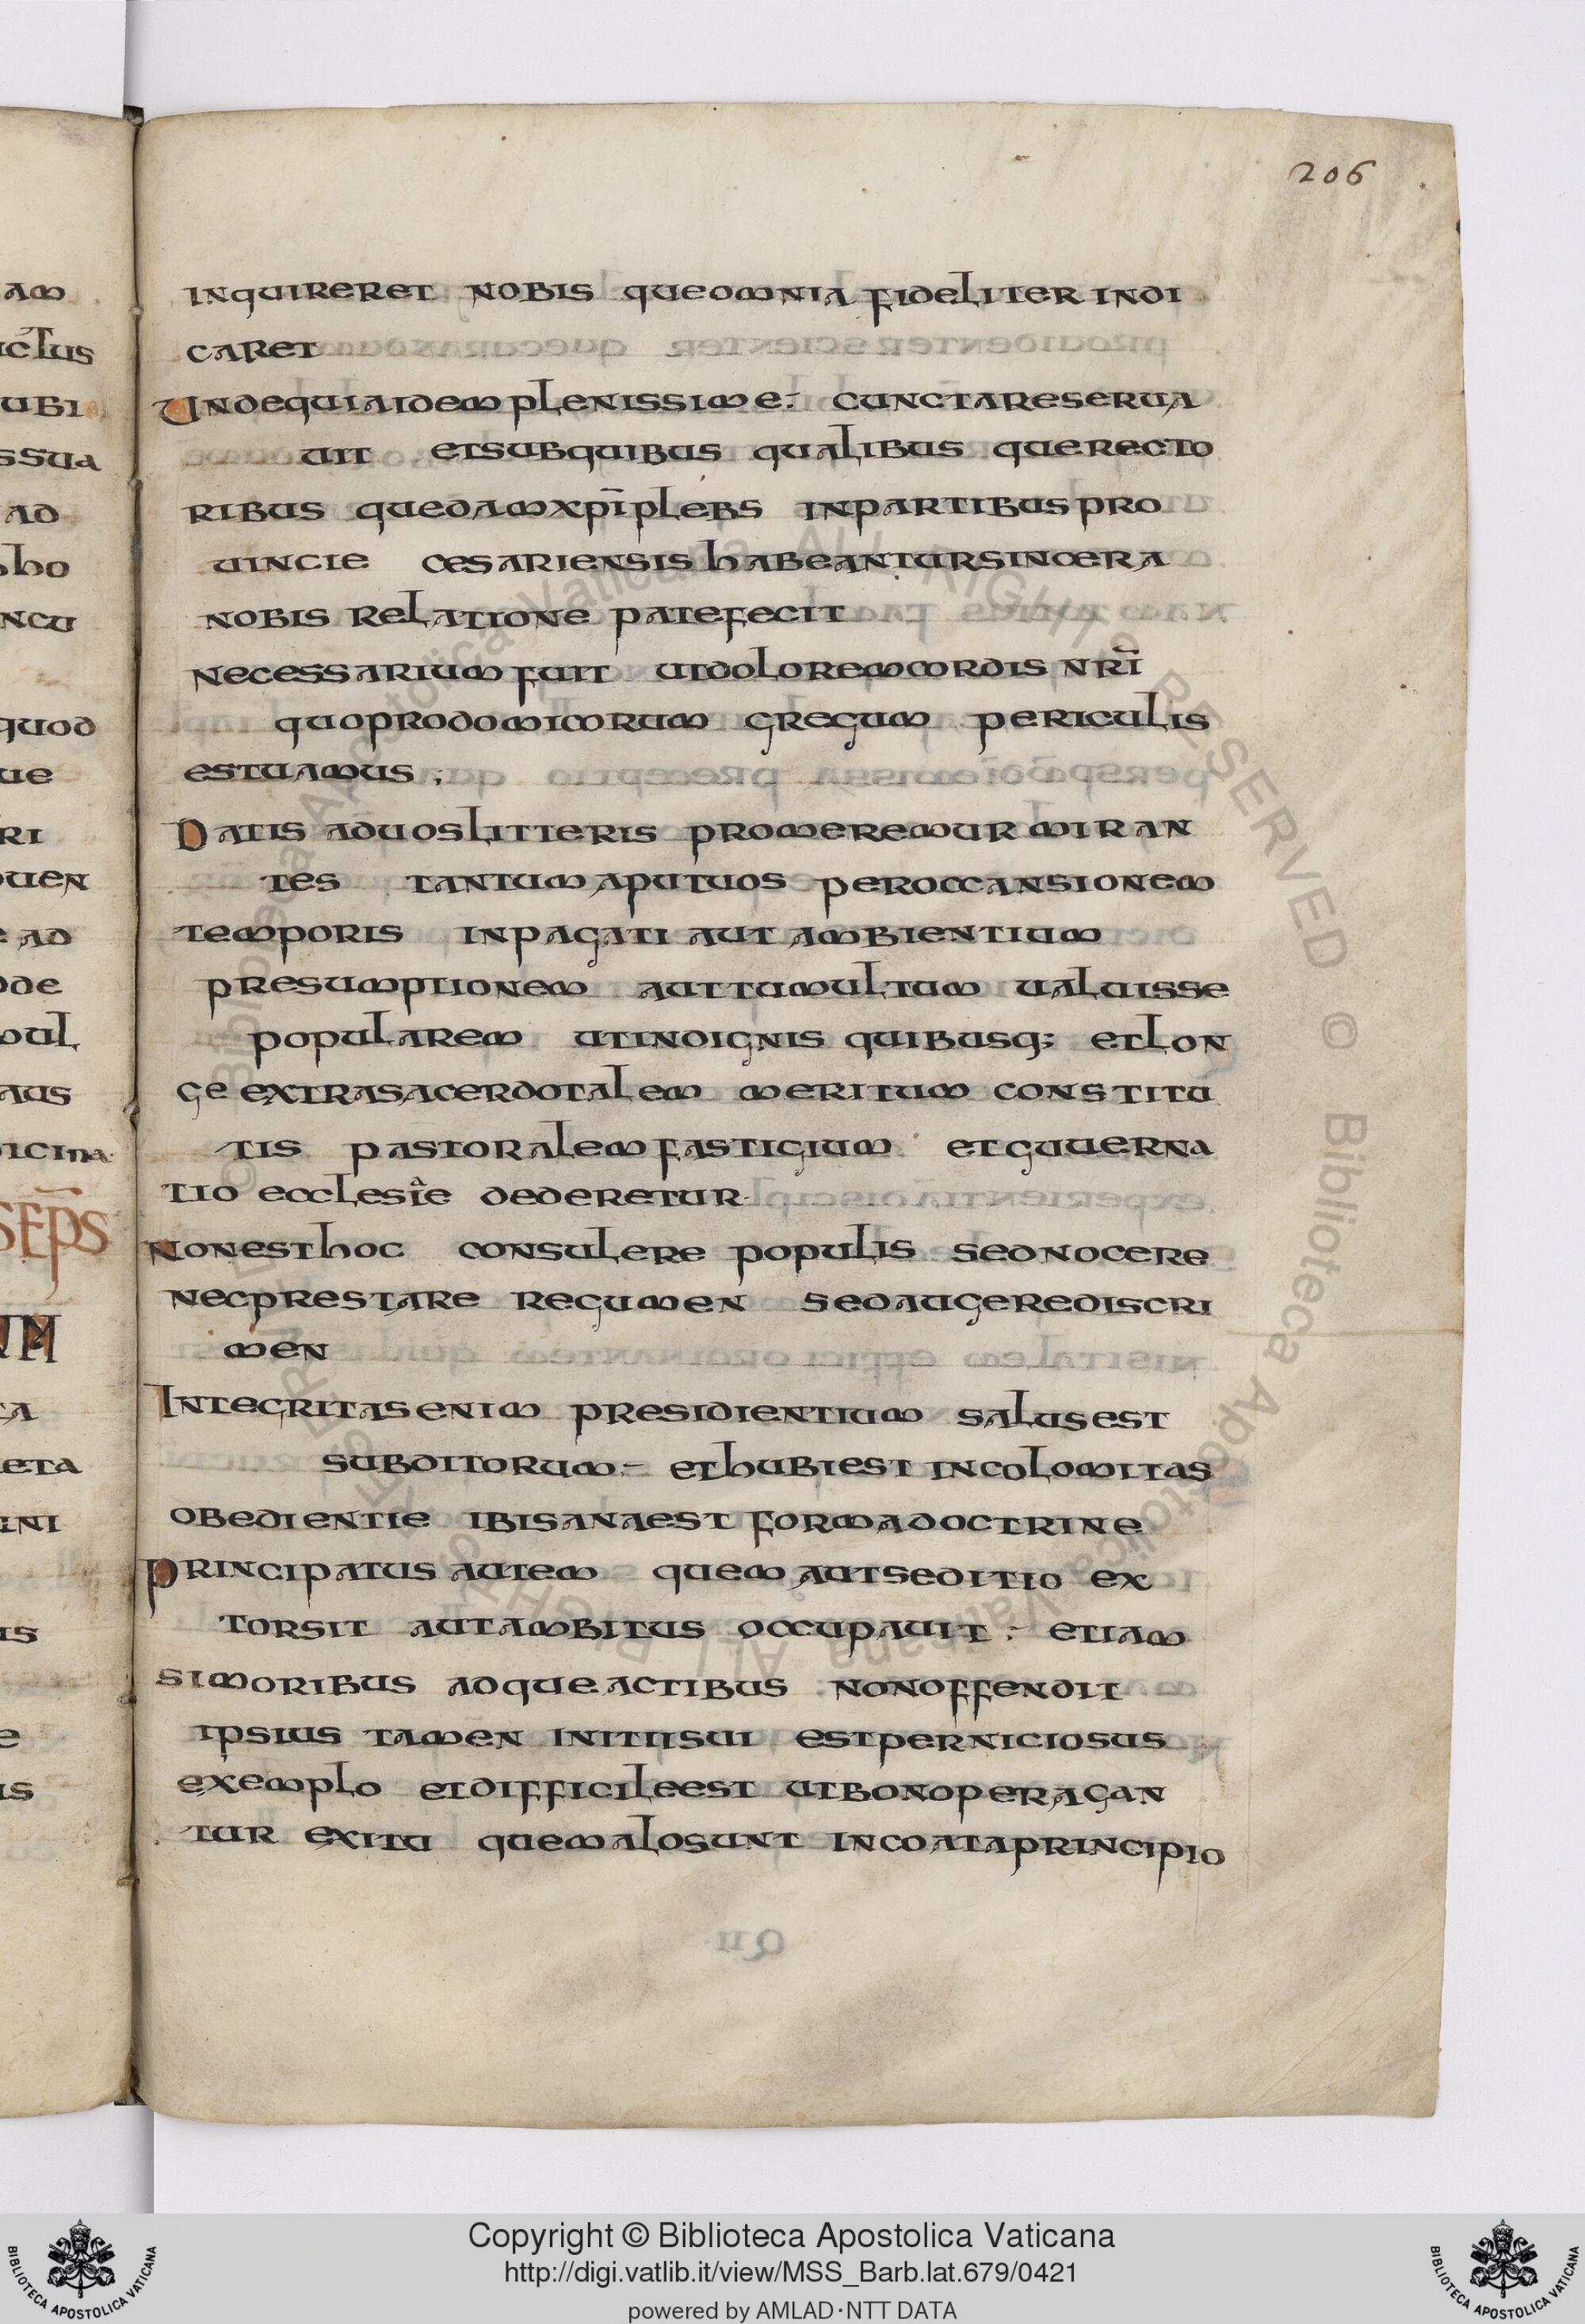 206
inquireret nobis queomnia fideliter indi
caret
Undequiaidem plenissime: cunctareserua
uit etsubquibus qualibus querecto
ribus quedamxp̄iplebs inpartibuspro
uincie cesariensis habeantursincera
nobis relatione patefecit
necessarium fuit utdoloremcordis nr̄i
quoprodomicorum gregum periculis
estuamus;
Datis aduoslitteris promeremur miran
tes tantum aputuos peroccansionem
temporis inpagati aut ambientium
presumptionem auttumultum ualuisse
popularem utindignis quibusq; etlon
ge extrasacerdotalem meritum constitu
tis pastoralemfastigium etguuerna
tio ecclesie dederetur.
nonesthoc consulere populis sednocere
necprestare regumen sedaugerediscri
men
Integritasenim presidientium salusest
subditorum:- ethubiest incolomitas
obedientie ibisanaest formadoctrine
principatus autem quem autseditio ex
torsit autambitus occupauit: etiam
simoribus adqueactibus nonoffendit
ipsius tamen initiisui estperniciosus
exemplo etdifficileest utbonoperagan
tur exitu quemalosunt incoataprincipio
am
ctus
ubi
ssua
ad
ho
ncu
quod
ue
ri
uen
ad
de
mul
aus
icina
SEP̄S
eta
ini
is
Copyright © Biblioteca Apostolica Vaticana
http://digi.vatlib.it/view/MSS_Barb.lat.679/0421
powered by AMLAD·NTT DATA
BIBLIOTECA APOSTOLICA VATICANA
BIBLIOTECA APOSTOLICA VATICANA